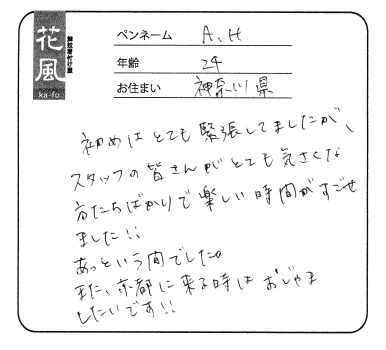 花風
舞妓着付け屋
ka-fu
ペンネーム A.H.
年齢 24
お住まい 神奈川県
初めはとても緊張してましたが、
スタッフの皆さんがとても気さくな
方たちばかりで楽しい時間がすごせ
ました!!
あっという間でした。
また、京都に来る時はおじゃま
したいです!!